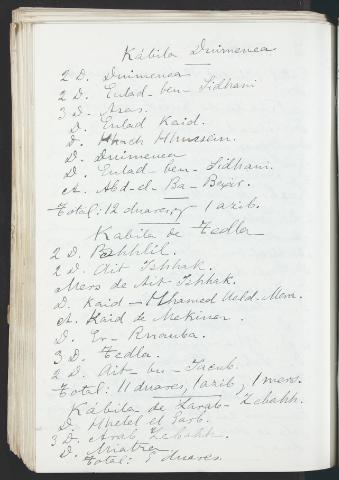 Kábila Duimenea
2 D. Duimenea
2 D. Eulad-ben-Sidhani
3 D. Asas.
D. Eulad Kaid.
D. Hhach Hhussein.
D. Duimenea
D. Eulad-ben-Sidhani.
A. Abd-el-Ba-Beyir.
Total: 12 duares, y 1 azib.
Kabila de Tedla
2 D. Bahhlil.
2 D. Ait Ishhak.
Mers de Ait-Ishhak.
D. Kaid-Mhamed Ueld-Mom.
A. Kaid de Mekinez.
D. Er-Rnauba.
3 D. Tedla.
2 D. Ait-bu-Jacub.
Total: 11 duares, 1 azib, 1 mers.
Kábila de Zarab-Zebahh.
D. Hhelel el Garb.
3 D. Arab Zebahh.
D. Miatza
Total: 5 duares.